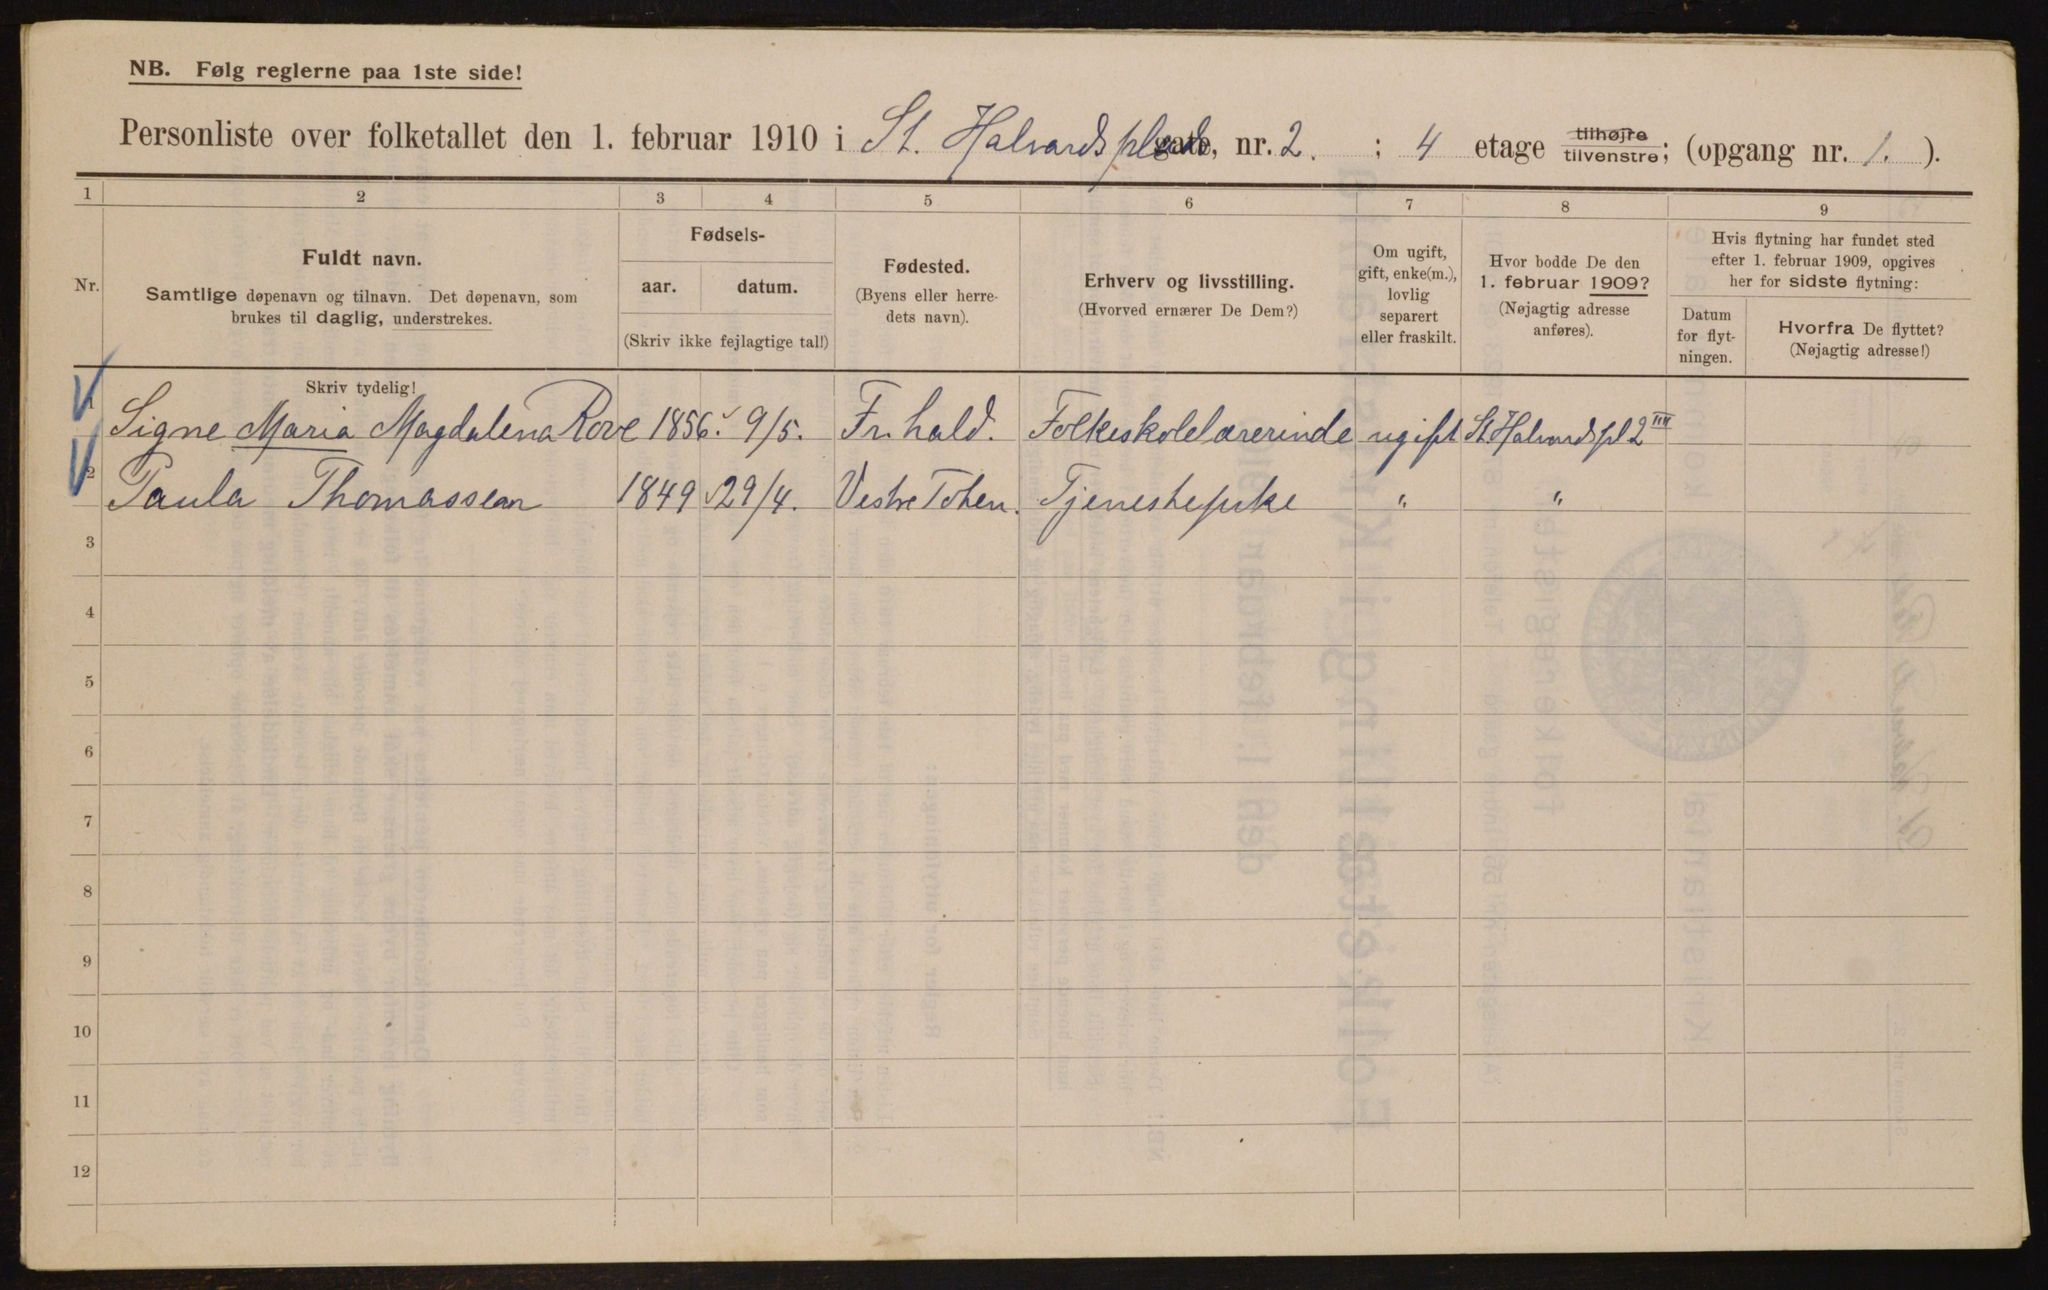 NB. Følg reglerne paa 1ste side!
Personliste over folketallet den 1. februar 1910 i St. Halvards plads gate, nr. 2. ; 4 etage tilhøjre tilvenstre; (opgang nr. 1. ).
1 2 3 4 5 6 7 8 9
Nr.
Fuldt navn.
Samtlige døpenavn og tilnavn. Det døpenavn, som
brukes til daglig, understrekes.
Skriv tydelig!
Fødsels-
aar. datum.
(Skriv ikke fejlagtige tal!)
Fødested.
(Byens eller herre-
dets navn).
Erhverv og livsstilling.
(Hvorved ernærer De Dem?)
Om ugift,
gift, enke(m.),
lovlig
separert
eller fraskilt.
Hvor bodde De den
1. februar 1909?
(Nøjagtig adresse
anføres).
Hvis flytning har fundet sted
efter 1. februar 1909, opgives
her for sidste flytning:
Datum
for flyt-
ningen.
Hvorfra De flyttet?
(Nøjagtig adresse!)
1 Signe Maria Magdalena Rove 1856. 9/5. Fr.hald. Folkeskolelærerinde ugift St Halvardspl 2 IIII
2 Paula Thomassen 1849 29/4. Vestre Toten. Tjenestepike " "
3
4
5
6
7
8
9
10
11
12